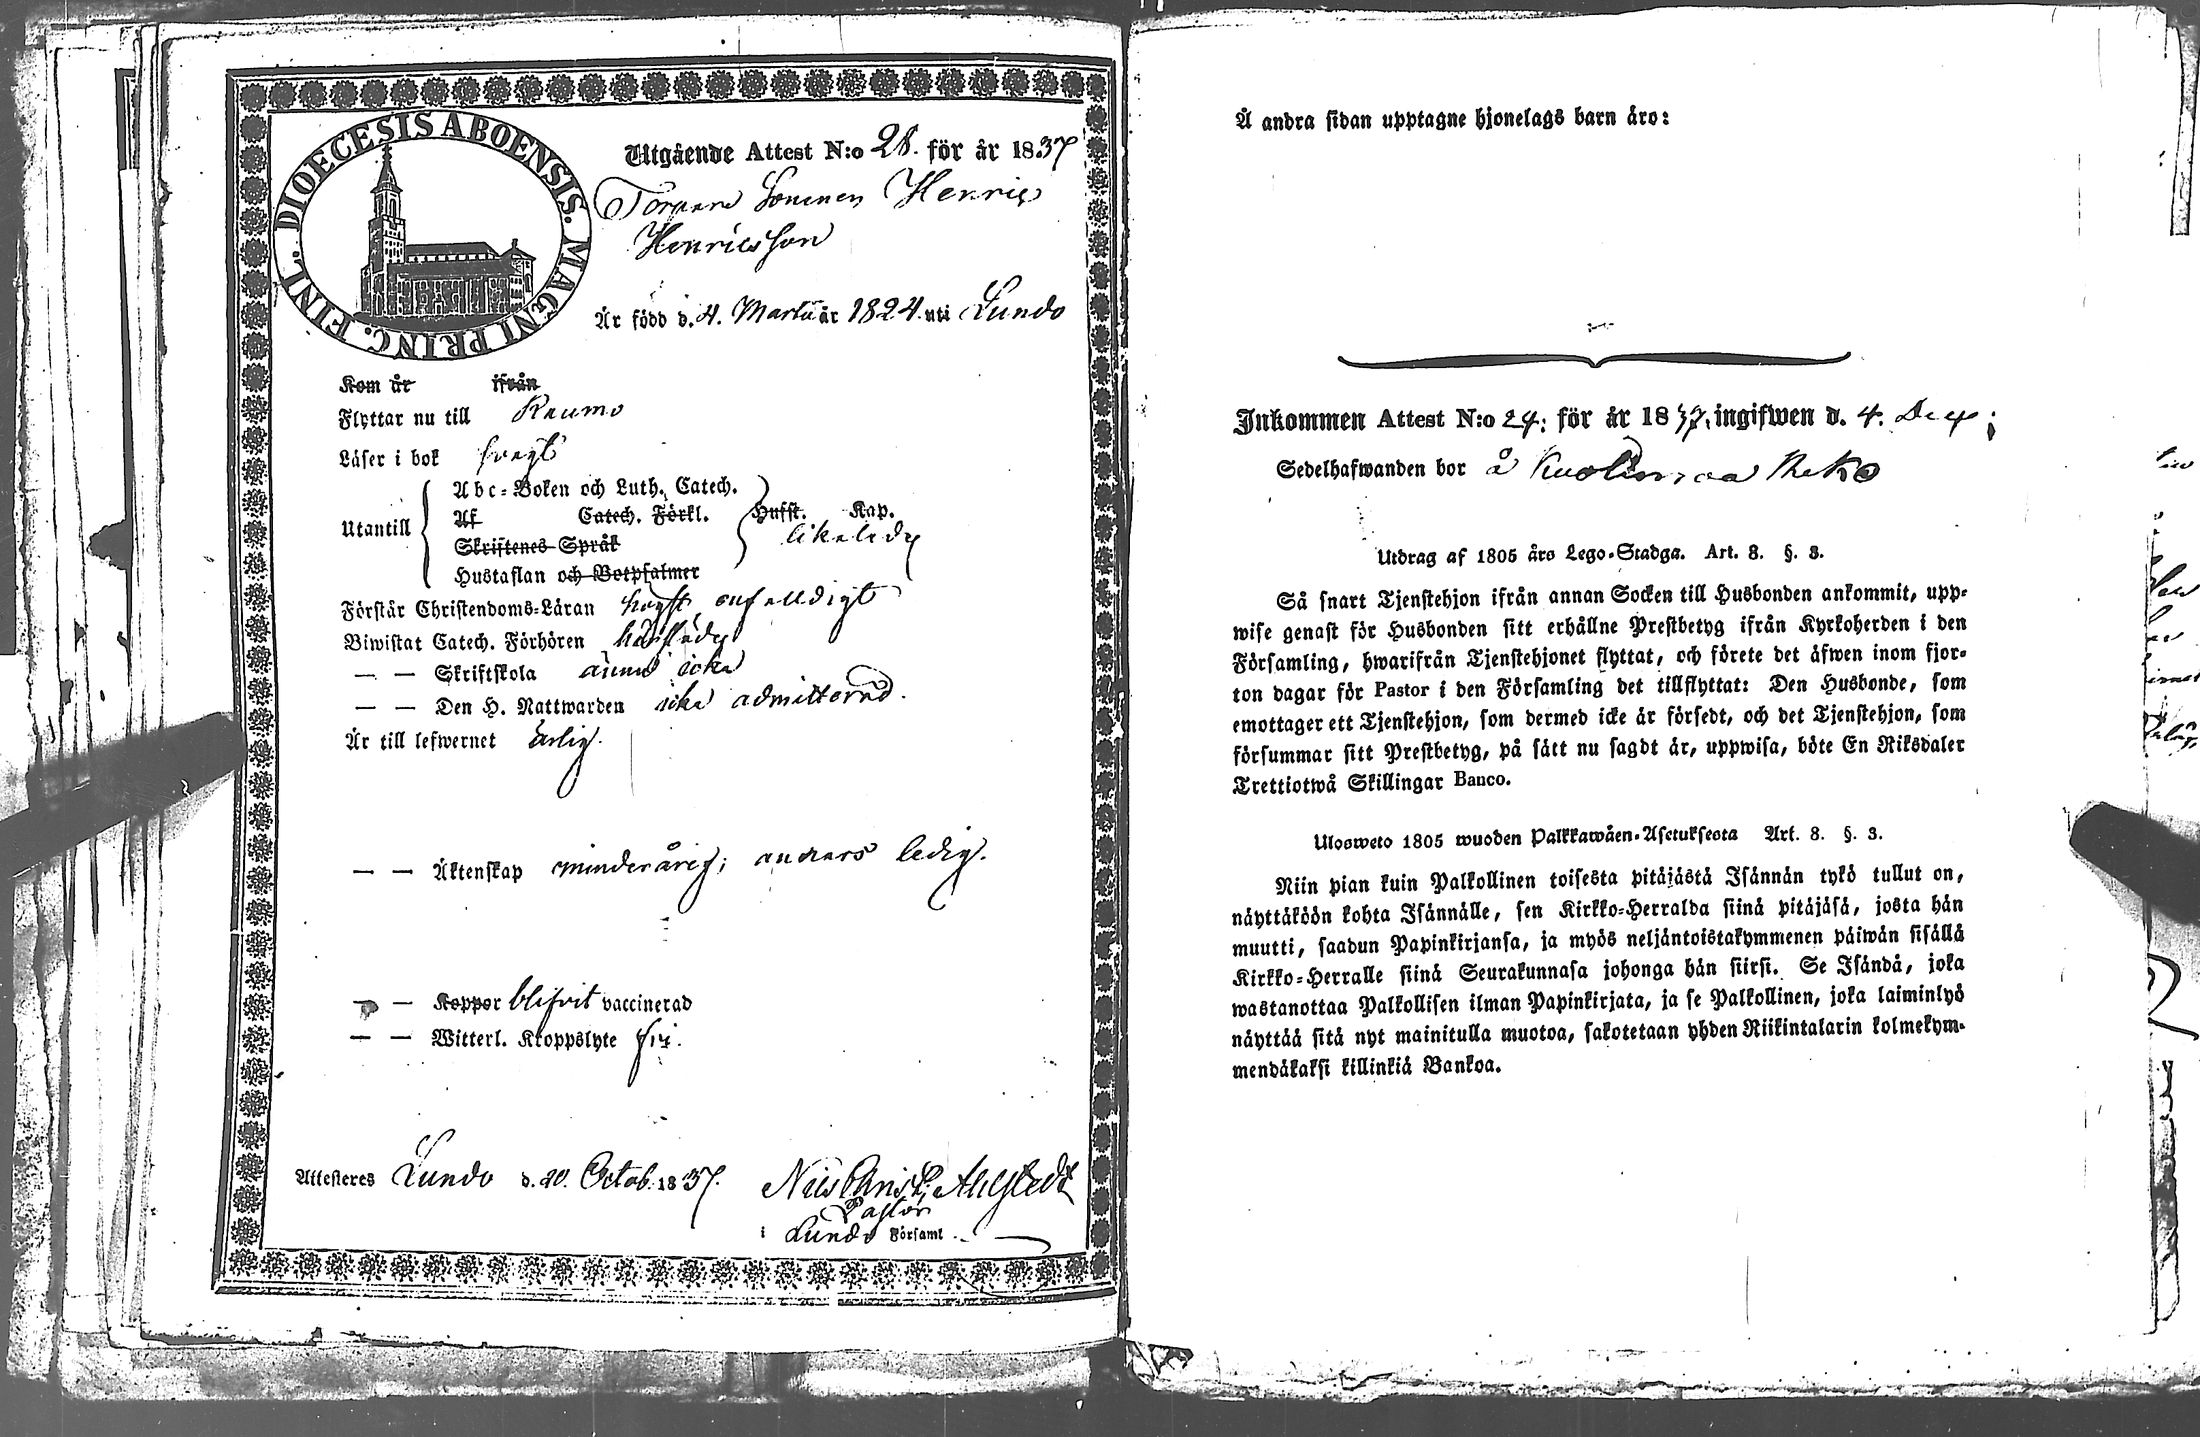 DIOECESIS ABOENSIS. MAGNI PRINC. FINL.
Utgående Attest N:o 28. för år 1837
Torpare Sonen Henric
Henricsson
Är född d. 4. Martii år 1824. uti Lundo
Kom år ifrån
Flyttar nu till Raumo
Läser i bok svagt
Utantill
Abc-Boken och Luth. Catech.
Af Catech. Förkl. Hufst. Kap.
likaledes
Skriftenes Språk
Hustaflan och Botpsalmer
Förstår Christendoms-Läran högst enfaldigt
Biwistat Catech. Förhören
— — Skriftskola ännu icke
— — Den H. Nattwarden icke admitterad.
Är till lefwernet ärlig.
— — Äktenskap minderårig; anders ledig.
— — Koppor blifvit vaccinerad
— — Witterl. Kroppslyte fri.
Attesteres Lundo d. 20. Octob. 1837.
Nils Christ. Ahlstedt
Pastor
i Lundo Församl.
Å andra sidan upptagne hjonelags barn äro:
Inkommen Attest N:o 24: för år 1837. ingifwen d. 4. Dec
Sedelhafwanden bor å
Utdrag af 1805 års Lego-Stadga. Art. 8. §. 3.
Så snart Tjenstehjon ifrån annan Socken till Husbonden ankommit, upp-
wise genast för Husbonden sitt erhållne Prestbetyg ifrån Kyrkoherden i den
Församling, hwarifrån Tjenstehjonet flyttat, och förete det äfwen inom fjor-
ton dagar för Pastor i den Församling det tillflyttat: Den Husbonde, som
emottager ett Tjenstehjon, som dermed icke är försedt, och det Tjenstehjon, som
försummar sitt Prestbetyg, på sätt nu sagdt är, uppwisa, böte En Riksdaler
Trettiotwå Skillingar Banco.
Ulosweto 1805 wuoden Palkkawäen-Asetuksesta Art. 8. §. 3.
Niin pian kuin Palkollinen toisesta pitäjästä Isännän tykö tullut on,
näyttäköön kohta Isännälle, sen Kirkko-Herralda siinä pitäjäsä, josta hän
muutti, saadun Papinkirjansa, ja myös neljäntoistakymmenen päiwän sisällä
Kirkko-Herralle siinä Seurakunnasa johonga hän siirsi. Se Isändä, joka
wastanottaa Palkollisen ilman Papinkirjata, ja se Palkollinen, joka laiminlyö
näyttää sitä nyt mainitulla muotoa, sakotetaan yhden Riikintalarin kolmekym-
mendäkaksi killinkiä Bankoa.